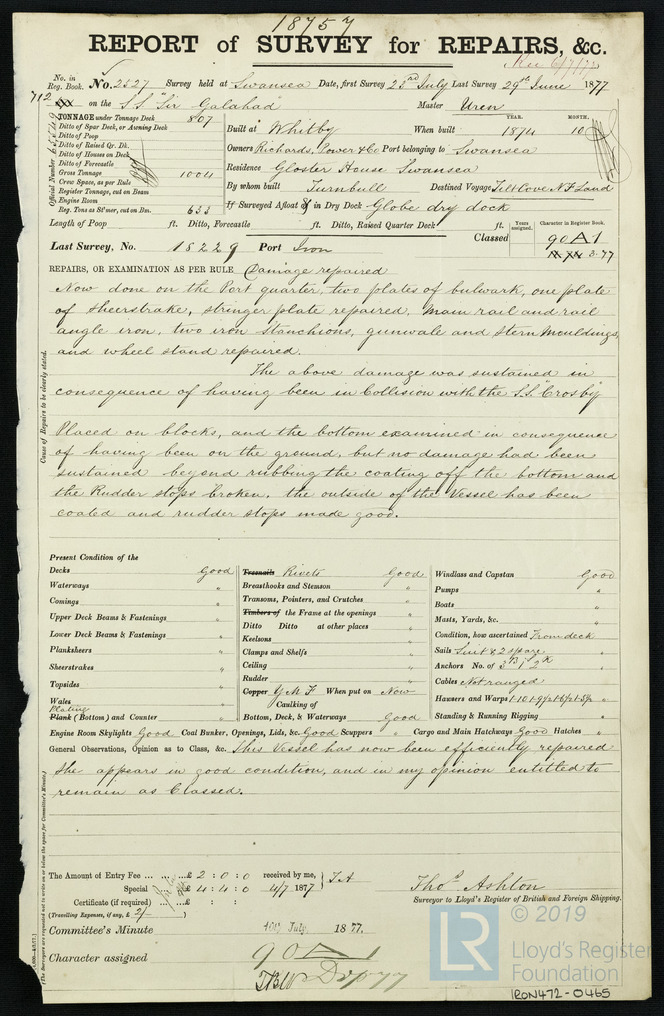 18757
REPORT of SURVEY for REPAIRS, &c.
Rec 6/7/77
No. in Reg. Book. No. 2527 Survey held at Swansea Date, first Survey 25rd July Last Survey 29th June 1877
712 on the S.S. "Sir Galahad" Master Uren
TONNAGE under Tonnage Deck 807
Ditto of Spar Deck, or Awning Deck
Ditto of Poop
Ditto of Raised Qr. Dk.
Ditto of Houses on Deck
Ditto of Forecastle
Gross Tonnage 1004
Crew Space, as per Rule
Register Tonnage, cut on Beam
Engine Room
Reg. Tons as St'mer, cut on Bm. 633
Official Number
Built at Whitby When built 1874 YEAR. MONTH. 10
Owners Richards, Power & Co Port belonging to Swansea
Residence Gloster House Swansea
By whom built Turnbull Destined Voyage Tilt Cove N.F. Land
If Surveyed Afloat or in Dry Dock Globe dry dock
Length of Poop ft. Ditto, Forecastle ft. Ditto, Raised Quarter Deck ft.
Classed Years assigned. Character in Register Book. 90 A 1
3.77
Last Survey, No. 15229 Port Iron
REPAIRS, OR EXAMINATION AS PER RULE Damage repaired
Now done on the Port quarter, two plates of bulwark, one plate
of sheerstrake, stringer plate repaired, Main rail and rail
angle iron, two iron stanchions, gunwale and stern mouldings,
and wheel stand repaired.
The above damage was sustained in
consequence of having been in Collision with the S.S. "Crosby"
Placed on blocks, and the bottom examined in consequence
of having been on the ground, but no damage had been
sustained beyond rubbing the coating off the bottom and
the Rudder stops broken, the outside of the Vessel has been
coated and rudder stops made good.
Cause of Repairs to be clearly stated.
Present Condition of the
Decks Good
Waterways "
Comings "
Upper Deck Beams & Fastenings "
Lower Deck Beams & Fastenings "
Planksheers "
Sheerstrakes "
Topsides "
Wales "
Plating
Plank (Bottom) and Counter "
Treenails Rivets Good
Breasthooks and Stemson "
Transoms, Pointers, and Crutches "
Timbers of the Frame at the openings "
Ditto Ditto at other places "
Keelsons "
Clamps and Shelfs "
Ceiling "
Rudder "
Copper Y.M.F. When put on Now
Caulking of
Bottom, Deck, & Waterways Good
Windlass and Capstan Good
Pumps "
Boats "
Masts, Yards, &c. "
Condition, how ascertained From deck
Sails Suit & 2 spare
Anchors No. of 3 B 1 S 2 K
Cables Not ranged
Hawsers and Warps
Standing & Running Rigging "
Engine Room Skylights Good Coal Bunker, Openings, Lids, &c. Good Scuppers " Cargo and Main Hatchways Good Hatches "
General Observations, Opinion as to Class, &c. This Vessel has now been efficiently repaired
She appears in good condition, and in my opinion entitled to
remain as Classed.
(The Surveyors are requested not to write on or below the space for Committee's Minute.)
The Amount of Entry Fee ... £ 2 : 0 : 0 received by me, T.A
Special ... £ 4 : 4 : 0 4/7 1877
Certificate (if required) ... £ : :
(Travelling Expenses, if any, £ 2/-)
Thos. Ashton
Surveyor to Lloyd's Register of British and Foreign Shipping.
Committee's Minute 10th July 1877.
Character assigned 90 A 1
© 2019
LR
Lloyd's Register
Foundation
IRON472-0465